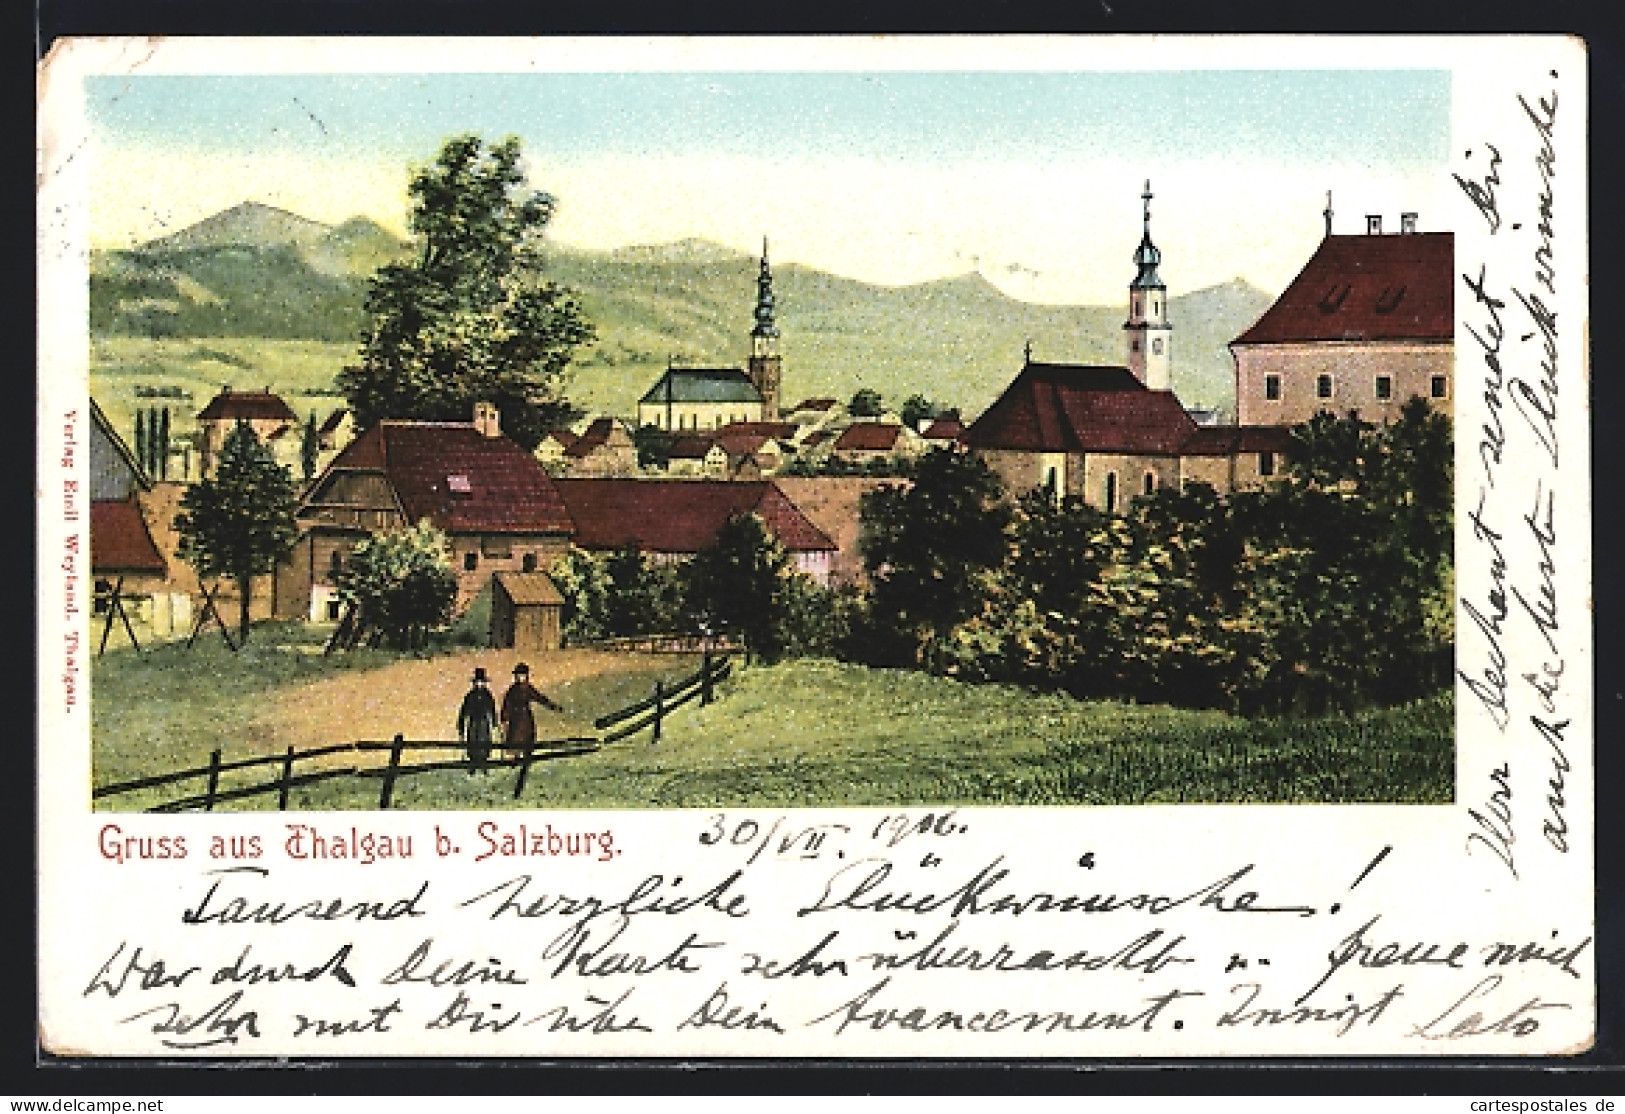 Verlag Emil Weyland, Thalgau.
Gruss aus Thalgau b. Salzburg.
30/VII. 1906.
Tausend herzliche Glückwünsche!
War durch Deine Karte sehr überrascht u. freue mich
sehr mit Dir über Dein Avancement. Innigst
sendet Dir
auch die Glückwünsche.
cartespostales de